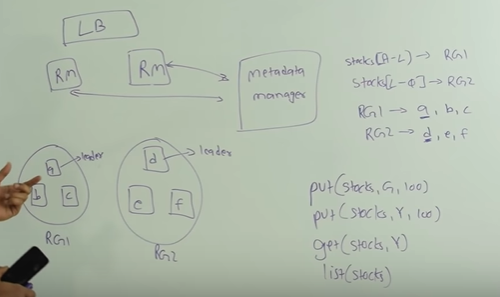 LB
Rm
Rm
metadata
manager
stocks[A-L) → RG1
stocks[L-Φ] → RG2
RG1 → a, b, c
RG2 → d, e, f
a
leader
b
c
RG1
d
leader
e
f
RG2
put(stocks, G, 100)
put(stocks, Y, 100)
get(stocks, Y)
list(stocks)